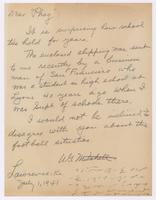 Dear "Phog"
It is surprising how school
ties hold for years.
The enclosed clipping was sent
to me recently by a business
man of San Francisco who
was a student in high school at
Lyons 40 years ago when I
was Supt of schools there.
I would not be inclined to
disagree with you about the
football situation
W. A. Mitchell
Lawrence, Ks
July 1, 1941